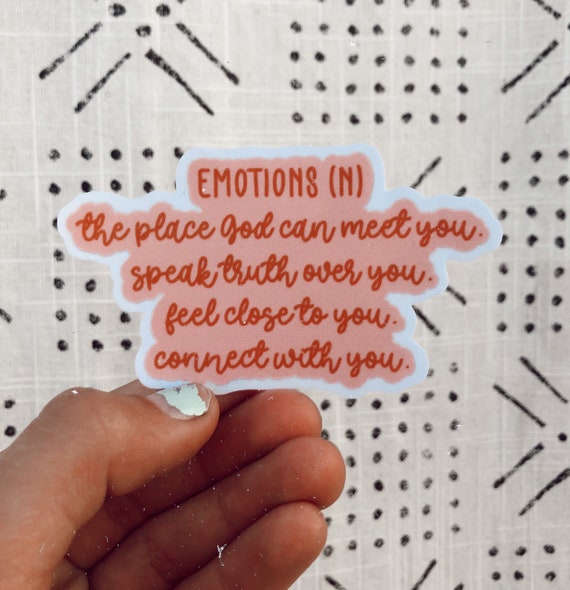 EMOTIONS (N)
the place God can meet you.
speak truth over you.
feel close to you.
connect with you.